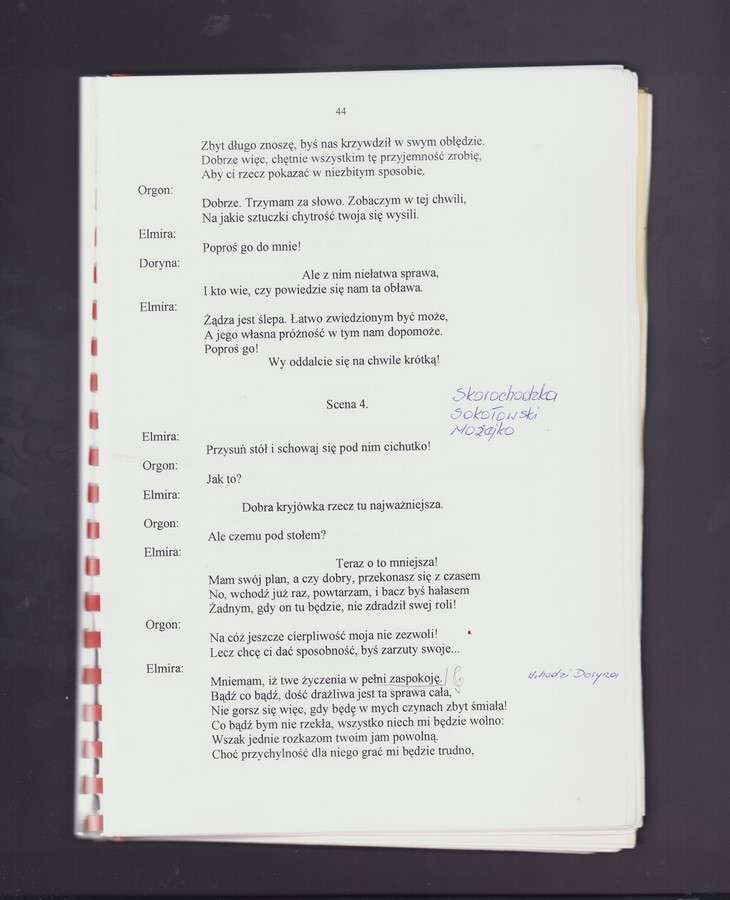 44
Zbyt długo znoszę, byś nas krzywdził w swym obłędzie.
Dobrze więc, chętnie wszystkim tę przyjemność zrobię,
Aby ci rzecz pokazać w niezbitym sposobie.
Orgon:
Dobrze. Trzymam za słowo. Zobaczym w tej chwili,
Na jakie sztuczki chytrość twoja się wysili.
Elmira:
Poproś go do mnie!
Doryna:
Ale z nim niełatwa sprawa,
I kto wie, czy powiedzie się nam ta obława.
Elmira:
Żądza jest ślepa. Łatwo zwiedzionym być może,
A jego własna próżność w tym nam dopomoże.
Poproś go!
Wy oddalcie się na chwile krótką!
Scena 4.
Skorochodzka
Sokołowski
Możejko
Elmira:
Przysuń stół i schowaj się pod nim cichutko!
Orgon:
Jak to?
Elmira:
Dobra kryjówka rzecz tu najważniejsza.
Orgon:
Ale czemu pod stołem?
Elmira:
Teraz o to mniejsza!
Mam swój plan, a czy dobry, przekonasz się z czasem
No, wchodź już raz, powtarzam, i bacz byś hałasem
Żadnym, gdy on tu będzie, nie zdradził swej roli!
Orgon:
Na cóż jeszcze cierpliwość moja nie zezwoli!
Lecz chcę ci dać sposobność, byś zarzuty swoje...
Elmira:
Mniemam, iż twe życzenia w pełni zaspokoję. wchodzi Doryna
Bądź co bądź, dość drażliwa jest ta sprawa cała,
Nie gorsz się więc, gdy będę w mych czynach zbyt śmiała!
Co bądź bym nie rzekła, wszystko niech mi będzie wolno:
Wszak jednie rozkazom twoim jam powolną.
Choć przychylność dla niego grać mi będzie trudno,